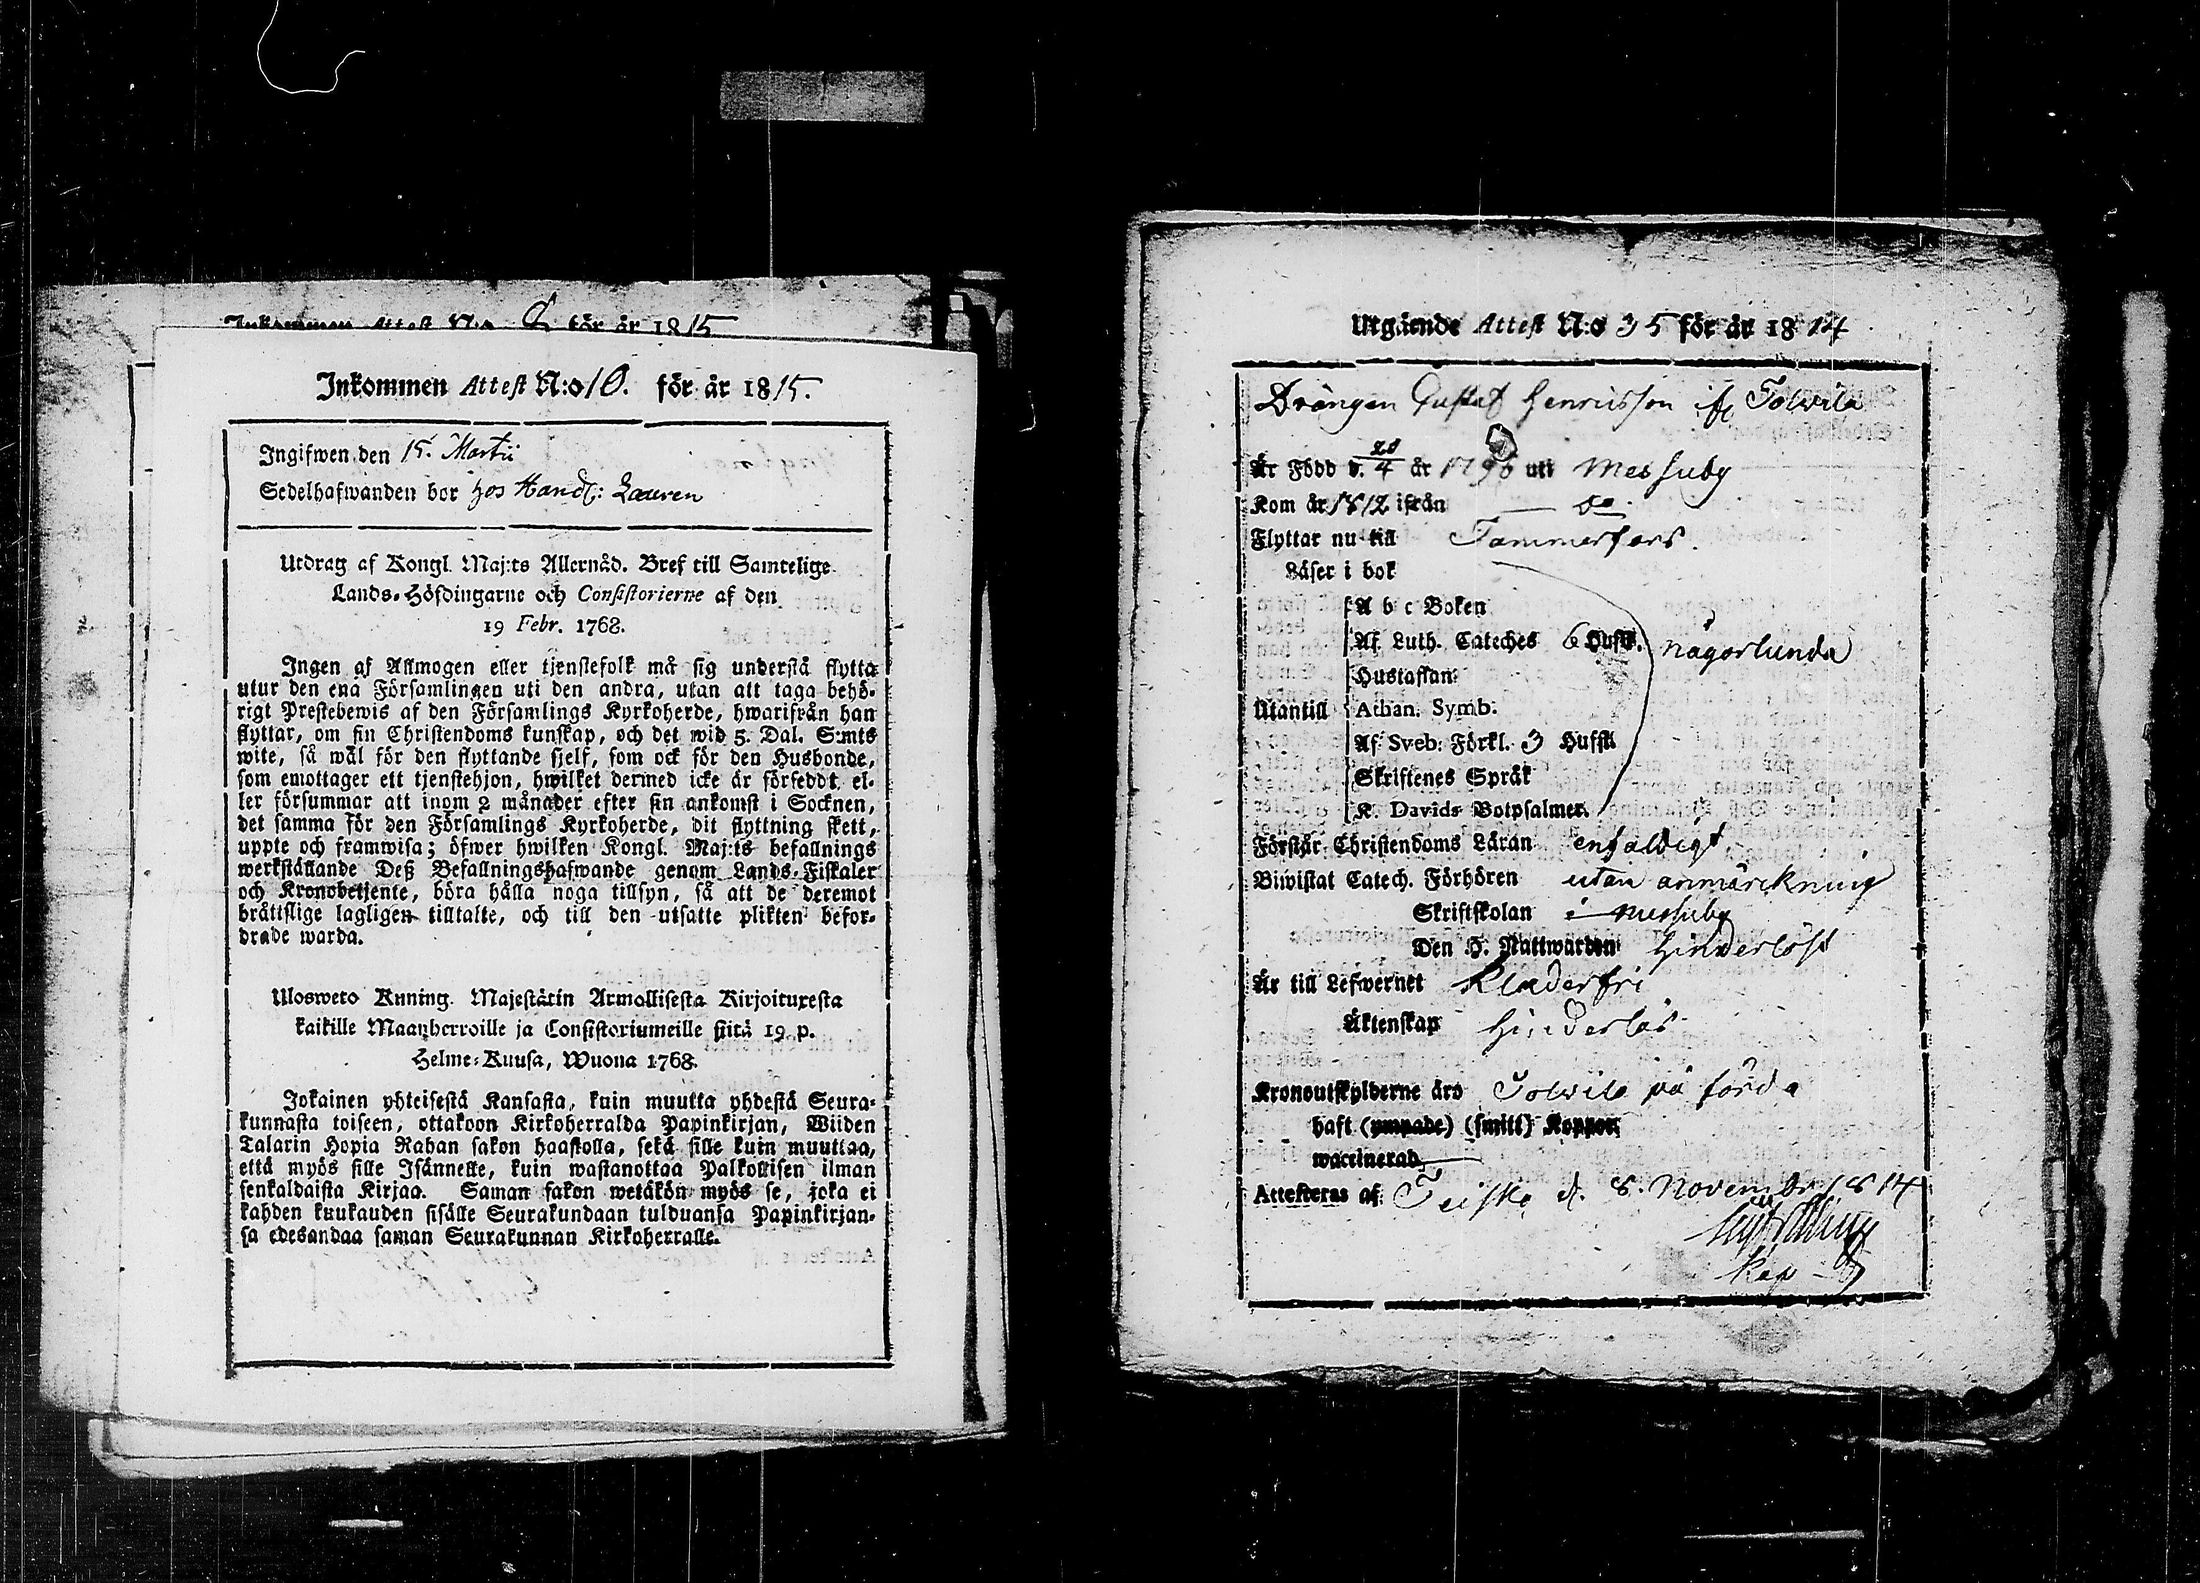 Inkommen Attest N:o för år 1815
Inkommen Attest N:o 10. för år 1815.
Ingifwen den 15. Martii
Sedelhafwanden bor hos Handl: Lauren
Utdrag af Kongl. Maj:ts Allernåd. Bref till Samtelige
Lands-Höfdingarne och Consistorierne af den
19 Febr. 1768.
Ingen af Allmogen eller tjenstefolk må sig understå flytta
utur den ena Församlingen uti den andra, utan att taga behö-
rigt Prestebewis af den Församlings Kyrkoherde, hwarifrån han
flyttar, om sin Christendoms kunskap, och det wid 5. Dal. S:mts
wite, så wäl för den flyttande sjelf, som ock för den Husbonde,
som emottager ett tjenstehjon, hwilket dermed icke är förseddt el-
ler försummar att inom 2 månader efter sin ankomst i Socknen,
det samma för den Församlings Kyrkoherde, dit flyttning skett,
uppte och framwisa; öfwer hwilken Kongl. Maj:ts befallnings
werkställande Deß Befallningshafwande genom Lands-Fiskaler
och Kronobetjente, böra hålla noga tillsyn, så att de deremot
bråttslige lagligen tilltalte, och till den utsatte plikten befor-
drade warda.
Ulosweto Kuning. Majestätin Armollisesta Kirjoituxesta
kaikille Maanherroille ja Consistoriumeille siitä 19. p.
Helme-Kuusa, Wuona 1768.
Jokainen yhteisestä Kansasta, kuin muutta yhdestä Seura-
kunnasta toiseen, ottakoon Kirkoherralda Papinkirjan, Wiiden
Talarin Hopia Rahan sakon haastolla, sekä sille kuin muuttaa,
että myös sille Isännelle, kuin wastanottaa Palkollisen ilman
senkaldaista Kirjaa. Saman sakon wetäkön myös se, joka ei
kahden kuukauden sisälle Seurakundaan tulduansa Papinkirjan-
sa edesandaa saman Seurakunnan Kirkoherralle.
Utgående Attest N:o 35 för år 1814
Drängen Gustaf Henricsson ifr Tolwila
Är Född d. 28/4 år 1790 uti Messuby
Kom år 1812 ifrån do
Flyttar nu till Tammerfors.
Läser i bok
A b c Boken
Af Luth. Cateches 6 Hufst. någorlunda
Hustaflan
Utantill Athan. Symb.
Af Sveb. Förkl. 3 Hufst.
Skriftenes Språk
K. Davids Botpsalmer.
Förstår Christendoms Läran enfaldigt
Biwistat Catech. Förhören utan anmärckning
Skriftskolan i Messuby
Den H. Nattwarden hinderlöst
Är till Lefwernet Klanderfri
Äktenskap hinderlös
Kronoutskylderne äro Tolwila på förda
haft (ympade) (smitt) Koppor,
waccinerad,
Attesteras af Teisko d. 8. Novembr 1814
Kap